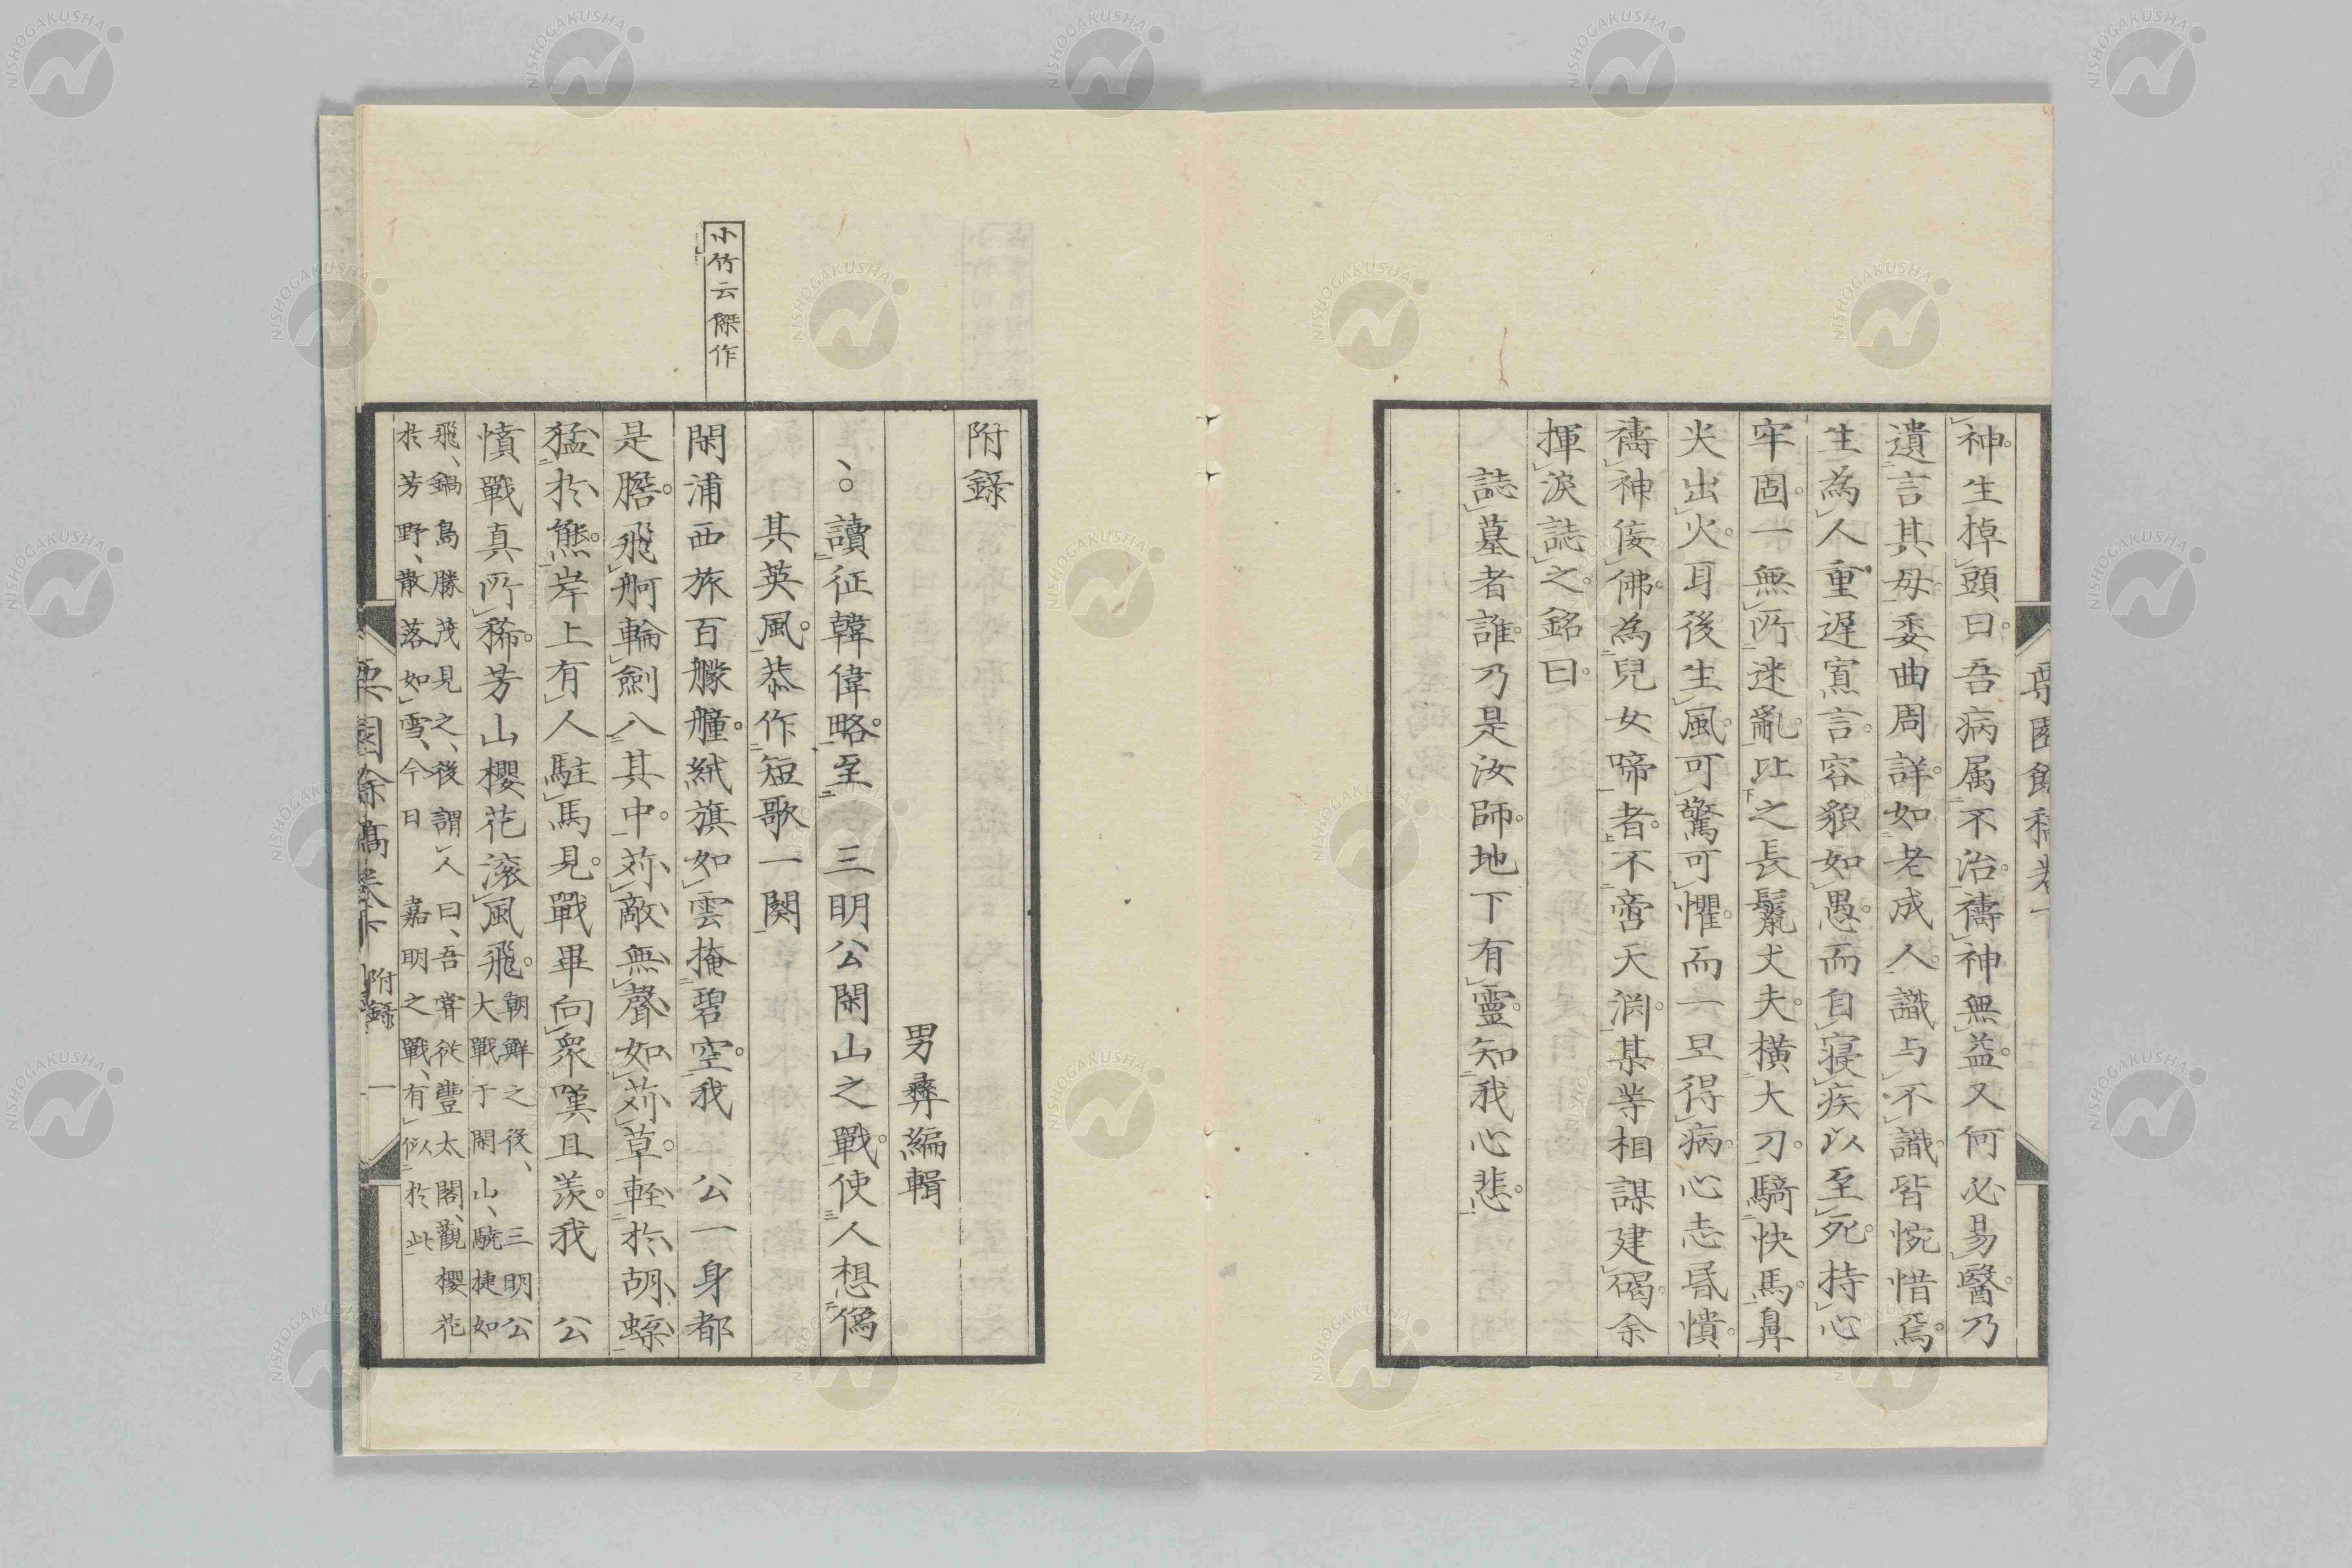 神生掉頭曰。吾病属不治。禱神無益。又何必易醫。乃
遺言其母。委曲周詳。如老成人。識与不識。皆惋惜焉。
生為人重遲寡言。容貌如愚。而自寝疾以至死。持心
牢固。一無所迷亂。比之長鬣丈夫。横大刀。騎快馬。鼻
尖出火。耳後生風。可驚可懼。而一旦得病。心志昬憒。
禱神佞佛。為兒女啼者。不啻天渊。某等相謀建碣。余
揮淚誌之。銘曰。
誌墓者誰。乃是汝師。地下有靈。知我心悲。
附錄
男彝編輯
讀征韓偉略。至三明公閑山之戰。使人想像
其英風。恭作短歌一闋
小竹云傑作
閑浦西旅百艨艟。絨旗如雲掩碧空。我公一身都
是膽。飛舸輪劍入其中。苅敵無聲如苅草。軽於胡蝶
猛於熊。岸上有人駐馬見。戰畢向衆嘆且羡。我公
憤戰真所稀。芳山櫻花滚風飛。
朝鮮之後、三明公
大戰于閑山、驍捷如
飛、鍋島勝茂見之、後謂人曰、吾嘗従豐太閤、觀櫻花
於芳野、散落如雪、今日嘉明之戰、有似於此
栗園餘稿卷下 附錄 一